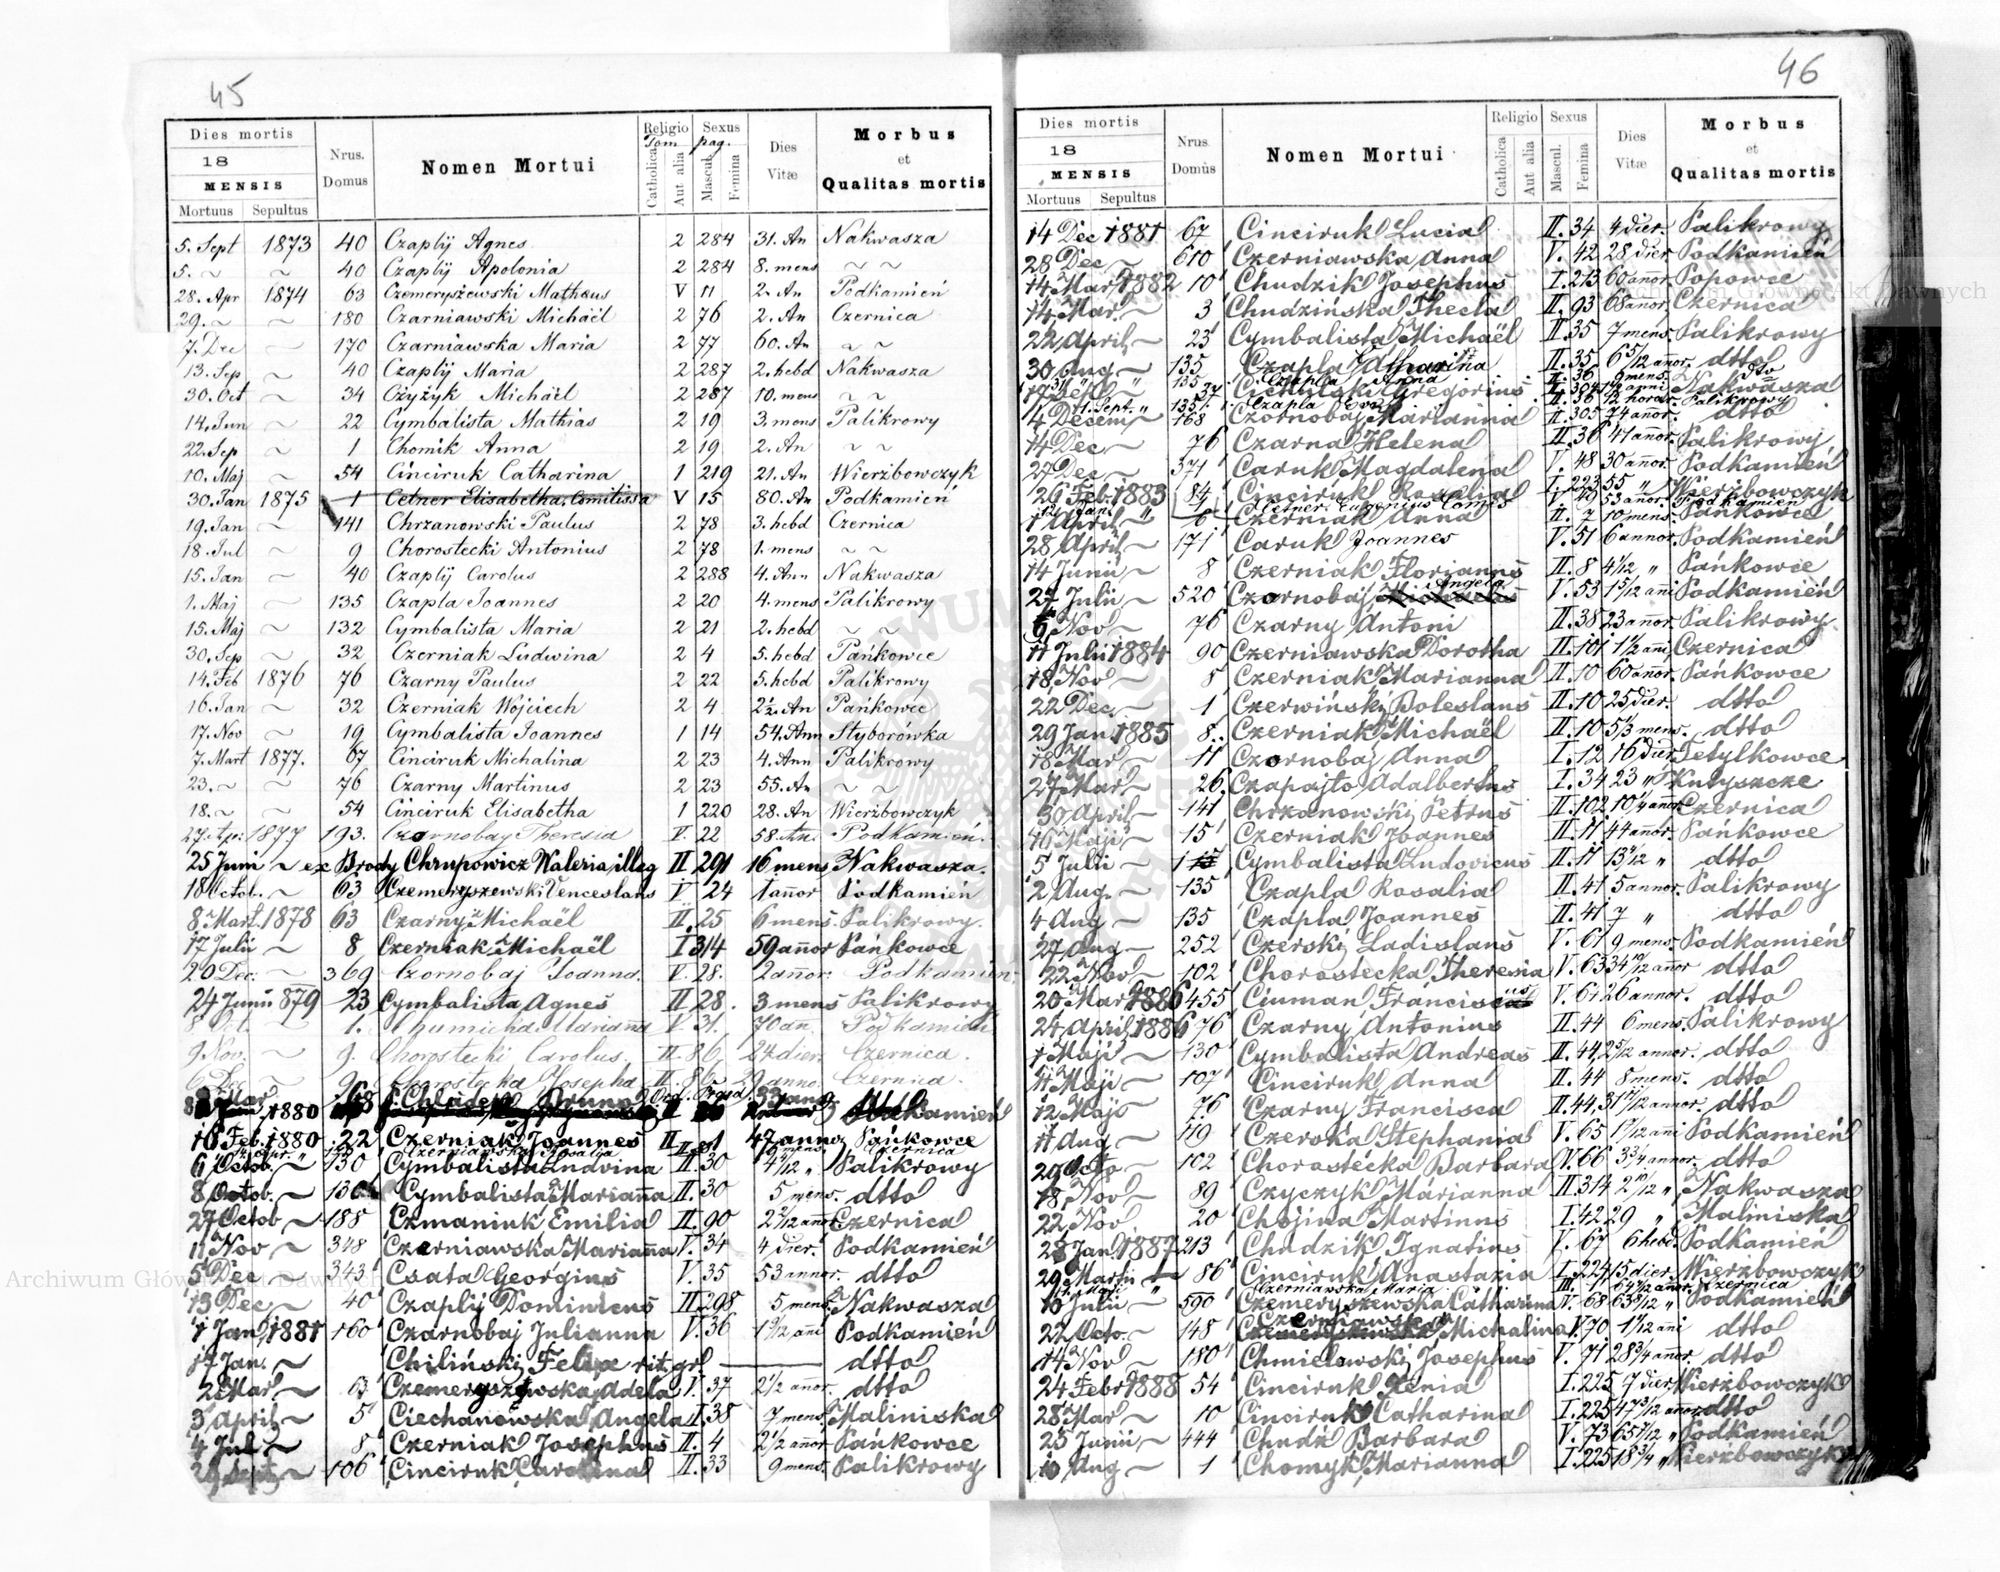 45
Dies mortis
18
MENSIS
Mortuus Sepultus
Nrus. Domus
Nomen Mortui
Religio Tom
Catholica Aut alia
Sexus pag.
Mascul. Femina
Dies Vitæ
Morbus et Qualitas mortis
5. Sept 1873 40 Czaplÿ Agnes 2 284 31. An Nakwasza
5. ~ ~ 40 Czaplÿ Apolonia 2 284 8. mens ~ ~
28. Apr 1874 63 Czemeryszewski Matheus V 11 2. An Podkamień
29. ~ ~ 180 Czarniawski Michaël 2 76 2. An Czernica
7. Dec ~ 170 Czarniawska Maria 2 77 60. An ~ ~
13. Sep ~ 40 Czaplÿ Maria 2 287 2. hebd Nakwasza
30. Oct ~ 34 Czyżyk Michaël 2 287 10. mens ~ ~
14. Jun ~ 22 Cymbalista Mathias 2 19 3. mens Palikrowy
22. Sep ~ 1 Chomik Anna 2 19 2. An ~ ~
10. Maj ~ 54 Cinciruk Catharina 1 219 21. An Wierzbowczyk
30. Jan 1875 1 Cetner Elisabetha, Comitissa V 15 80. An Podkamień
19. Jan ~ 141 Chrzanowski Paulus 2 78 3. hebd Czernica
18. Jul ~ 9 Chorostecki Antonius 2 78 1. mens ~ ~
15. Jan ~ 40 Czaplÿ Carolus 2 288 4. Ann Nakwasza
1. Maj ~ 135 Czapla Joannes 2 20 4. mens Palikrowy
15. Maj ~ 132 Cymbalista Maria 2 21 2. hebd ~ ~
30. Sep ~ 32 Czerniak Ludwina 2 4 5. hebd Pańkowce
14. Feb 1876 76 Czarny Paulus 2 22 5. hebd Palikrowy
16. Jan ~ 32 Czerniak Wojciech 2 4 2½. An Pańkowce
17. Nov ~ 19 Cymbalista Joannes 1 14 54. Ann Styborówka
7. Mart 1877. 67 Cinciruk Michalina 2 23 4. Ann Palikrowy
23. ~ ~ 76 Czarny Martinus 2 23 55. An ~ ~
18. ~ ~ 54 Cinciruk Elisabetha 1 220 28. An Wierzbowczyk
27. Apr. 1877 193. Czornobay Theresia V. 22 58. An. Podkamień.
25 Juni ~ ex Brody Chrupowicz Waleria illeg II 291 16 mens Nakwasza.
18 Octob. ~ 63 Czemeryszewski Venceslaus V. 24 1 añor Podkamień
8 Mart. 1878 63 Czarny Michaël II. 25 6 mens Palikrowy.
17 Julii ~ 8 Czerniak Michaël I 314 59 añor Pańkowce
20 Dec. ~ 369 Czornobaj Joanna. V. 28. 2 añor. Podkamien
24 Junii 879 23 Cymbalista Agnes II. 28. 3 mens Palikrowy
8 Oct. ~ 1. Marianna V. 31. 70 an. Podkamień
9 Nov. ~ 9. Chorostecki Carolus. II. 86 24 dier Czernica.
6 Dec ~ 9 Chorostecka Josepha II. 86 29 anno. Czernica.
8 Mar 1880 368 Chladek Bruno Ord. Praed. 33 ann. Podkamień
16 Feb. 1880 22 Czerniak Joannes II 47 anno Pańkowce
Apr. " Czerniawska Rosalia II 81 mens Czernica
6 Octob. ~ 130 Cymbalista Ludvina II. 30 4 1/12 " Palikrowy
8 Octob. ~ 130 Cymbalista Marianna II. 30 5 mens dtto
27 Octob ~ 188 Czmaniuk Emilia II. 90 2 2/12 añor. Czernica
11 Nov ~ 348 Czerniawska Marianna V. 34 4 dier. Podkamień
5 Dec ~ 343 Csata Georgius V. 35 53 annor. dtto
13 Dec ~ 40 Czaplÿ Dominicus II 298 5 mens. Nakwasza
1 Jan. 1881 160 Czarnobaj Julianna V. 36 1 9/12 añi Podkamień
17 Jan. ~ Chiliński Felix rit. gr. dtto
2 Mar ~ 63 Czemeryszewska Adela V. 37 2 1/2 añor. dtto
3 April ~ 5 Ciechanowska Angela I. 38 7 mens. Maliniska
4 Jul ~ 8 Czerniak Josephus II. 4 2 1/2 añor. Pańkowce
29 Sept ~ 106 Cinciruk Carolina II. 33 9 mens. Palikrowy
46
Dies mortis
18
MENSIS
Mortuus Sepultus
Nrus Domùs
Nomen Mortui
Religio
Catholica Aut alia
Sexus
Mascul. Femina
Dies Vitæ
Morbus et Qualitas mortis
14 Dec 1881 67 Cinciruk Lucia II. 34 4 dier. Palikrowy
28 Dec ~ 610 Czerniawska Anna V. 42 28 dier. Podkamień
14 Mar 1882 10 Chudzik Josephus I. 213 60 añor. Popowce
14 Mar. ~ 3 Chudzińska Thecla II. 93 68 añor. Czernica
22 April ~ 23 Cymbalista Michaël II. 35 7 mens. Palikrowy
30 Aug. ~ 135 Czapla Catharina II. 35 6 5/12 añor. dtto
" 135 Czapla Anna II. 36 9 mens. dtto
17 Sept ~ 37 Gregorius II. 304 Nakwasza
1. Sept. " 135 Czapla Eva II. 36 12 horar. Palikrowy
4 Decem ~ 168 Czornobaj Marianna II. 305 74 añor. dtto
14 Dec ~ 76 Czarna Helena II. 36 41 añor. Palikrowy
27 Dec ~ 371 Caruk Magdalena V. 48 30 añor. Podkamień
26 Feb. 1883 84 Cinciruk Rosalia I. 223 55 " Wierzbowczyk
12 Jan. " 1 Cetner Eugenius Comes V. 49 53 añor. Podkamień
1 April ~ 6 Czerniak Anna II. 7 10 mens. Pańkowce
28 April ~ 171 Caruk Joannes V. 51 6 annor. Podkamień
14 Junii ~ 8 Czerniak Florianus II. 8 4/12 " Pańkowce
27 Julii ~ 520 Czornobaj Angela V. 53 1 5/12 añi Podkamień
6 Nov ~ 76 Czarny Antoni II. 38 23 añor. Palikrowy
11 Julii 1884 90 Czerniawska Dorotha II. 101 1 1/2 añi Czernica
18 Nov ~ 8 Czerniak Marianna II. 10 60 añor. Pańkowce
22 Dec. ~ 1 Czerwiński Boleslaus II. 10 25 dier. dtto
29 Jan. 1885 8. Czerniak Michaël II. 10 5 1/3 mens. dtto
18 Mar ~ 11 Czornobaj Anna I. 12 16 dier Tetylkowce
27 Mar ~ 26 Czapajto Adalbertus I. 34 23 " Kutyszcze
30 April ~ 141 Chrzanowski Petrus II. 102 10 1/4 añor Czernica
16 Maji ~ 15 Czerniak Joannes II. 11 44 añor. Pańkowce
5 Julii ~ 1 Cymbalista Ludovicus II. 11 13 4/12 " dtto
2 Aug. ~ 135 Czapla Rosalia II. 41 5 annor. Palikrowy
4 Aug ~ 135 Czapla Joannes II. 41 7 " dtto
27 Aug ~ 252 Czerski Ladislaus V. 61 9 mens. Podkamień
22 Nov ~ 102 Chorostecka Theresia V. 63 34 10/12 añor dtto
20 Mar 1886 455 Ciuman Franciscus V. 64 26 annor. dtto
24 April 1886 76 Czarny Antonius II. 44 6 mens. Palikrowy
1 Maji ~ 130 Cymbalista Andreas II. 44. 2 5/12 annor. dtto
11 Maji ~ 107 Cinciruk Anna II. 44 8 mens. dtto
12 Maji ~ 76 Czarny Francisca II. 44. 31 11/12 annor. dtto
11 Aug ~ 119 Czeroka Stephania V. 65 1 9/12 añi Podkamień
29 Octo ~ 102 Chorostecka Barbara V. 66 3 3/4 annor. dtto
18 Nov ~ 89 Czyczyk Marianna II. 314 2 10/12 " Nakwasza
22 Nov 20 Chojina Martinus I. 42 29 " Maliniska
28 Jan. 1887 213 Chudzik Ignatius V. 67 6 hebd. Podkamień
29 Martii 86 Cinciruk Anastazia I. 224 15 dier. Wierzbowczyk
" Czerniawska Maria III. 1 Czernica
10 Julii ~ 590 Czemeryszewska Catharina V. 68 63 9/12 " Podkamień
22 Octo. ~ 148 Czerniawska Michalina V. 70 1 11/12 añi dtto
14 Nov ~ 180 Chmielowski Josephus V. 71 28 3/4 añor. dtto
24 Febr 1888 54 Cinciruk Xenia I. 225 7 dier Wierzbowczyk
28 Mar ~ 10 Cinciruk Catharina I. 225 47 3/12 añor. dtto
25 Junii ~ 444 Chudź Barbara V. 73 65 7/12 " Podkamień
10 Aug ~ 1 Chomyk Marianna I. 225 18 3/4 " Wierzbowczyk
Archiwum Główne Akt Dawnych
Archiwum Główne Akt Dawnych